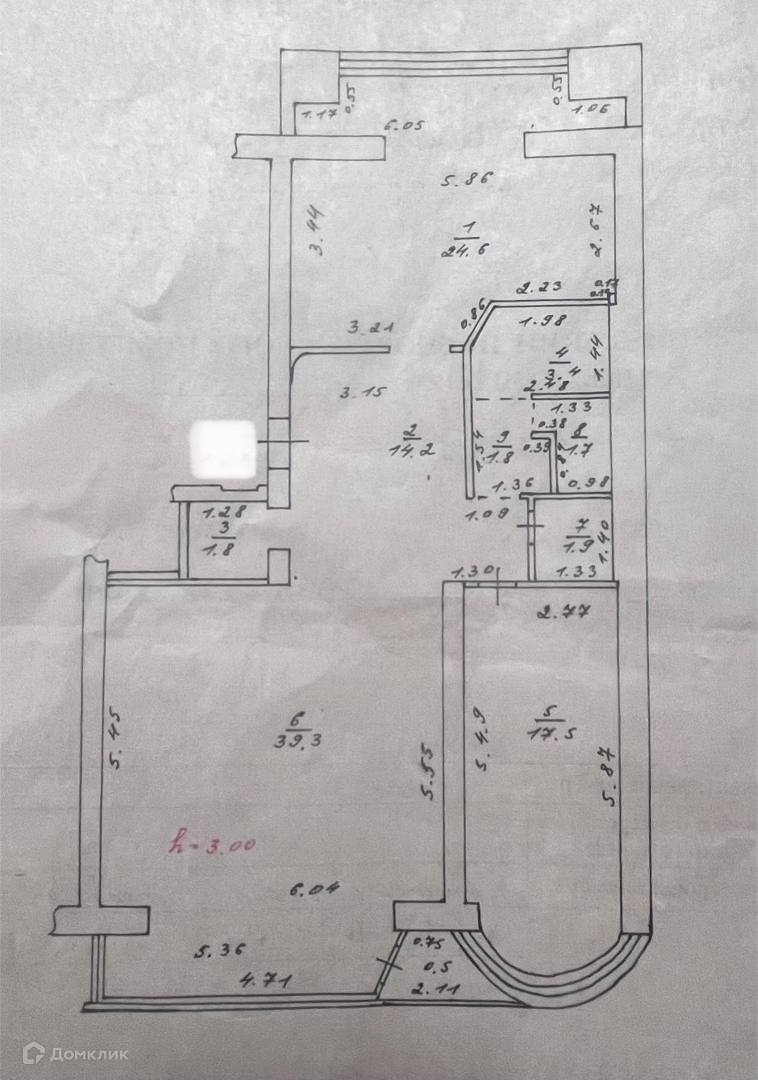 0.55
0.55
1.17
1.06
6.05
5.86
3.44
2.67
1
24.6
2.23
0.86
1.98
3.21
4
3.4
1.44
2.48
3.15
1.33
0.38
2
14.2
1.54
9
1.8
0.39
8
1.7
1.36
0.98
1.28
3
1.8
1.09
7
1.9
1.40
1.30
1.33
2.77
5.45
6
39.3
5.55
5.49
5
17.5
5.87
h = 3.00
6.04
5.36
4.71
0.75
0.5
2.11
Домклик